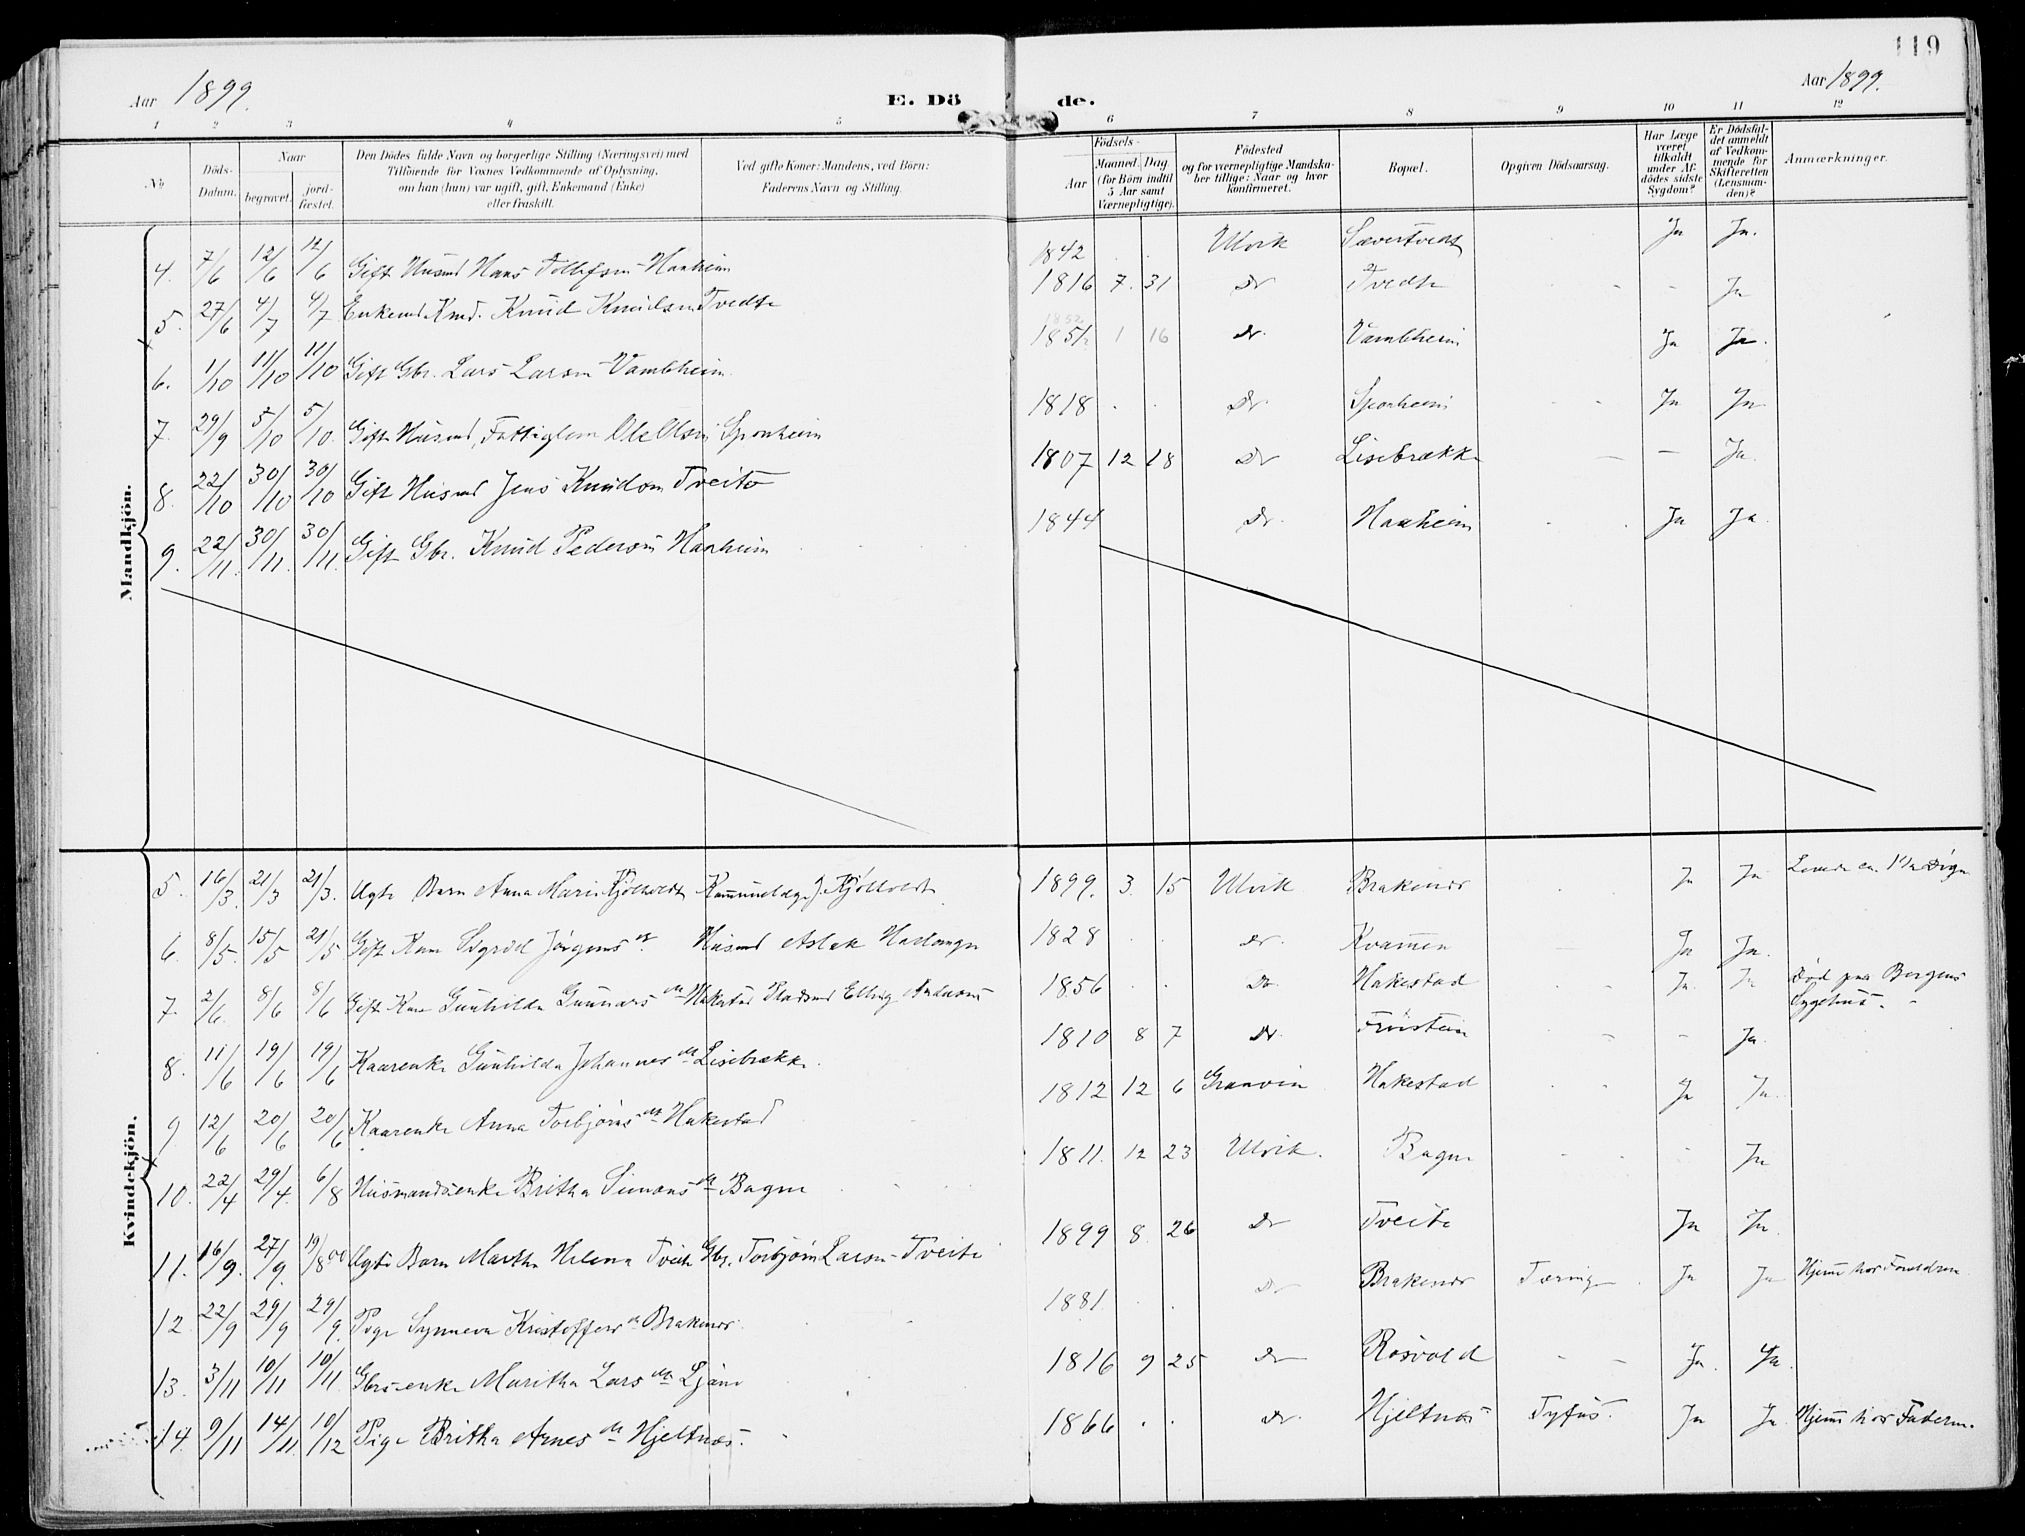 119
Aar 1899.
E. Dö de.
Aar 1899.
1 2 3 4 5 6 7 8 9 10 11 12
No
Döds-Datum.
Naar
begravet.
jord-fæstet.
Den Dödes fulde Navn og borgerlige Stilling (Næringsvei) med
Tilföiende for Voxnes Vedkommende af Oplysning,
om han (hun) var ugift, gift, Enkemand (Enke)
eller fraskilt.
Ved gifte Koner: Mandens, ved Börn:
Faderens Navn og Stilling.
Födsels-
Aar
Maaned. Dag
(for Börn indtil
5 Aar samt
Værnepligtige).
Födested
og for værnepligtige Mandska-
ber tillige: Naar og hvor
konfirmeret.
Bopæl.
Opgiven Dödsaarsag.
Har Læge
været
tilkaldt
under Af-
dödes sidste
Sygdom?
Er Dödsfal-
det anmeldt
af Vedkom-
mende for
Skifteretten
(Lensman-
den)?
Anmærkninger.
Mandkjön.
4. 7/6 12/6 12/6 Gift Husmd Hans Tollefsen Hanheim 1842 . . Ulvik Sævertvedt Ja Ja.
5. 27/6 4/7 4/7 Enkemd Knud Knudsen Tvedte 1816 7. 31 Do Tvedte - - Ja
6. 1/10 11/10 11/10 Gift Gbr. Lars Larsen Vambheim. 1852 1 16 Do. Vambheim Ja Ja.
7. 29/9 5/10 5/10. Gift Husmd, Fattiglem Ole Olsen Sponheim 1818 . . Do Sponheim - - Ja Ja
8. 22/10 30/10 30/10 Gift Husmd Jens Knudsen Tveito 1807 12 18 Do Lisebrække - - Ja.
9. 22/11. 30/11. 30/11. Gift Gbr. Knud Pedersen Hanheim 1844 Do. Hanheim Ja Ja.
Kvindekjön.
5. 16/3. 21/3 21/3. Ægte Barn Anna Marie Kjöltvedt Kommunelæge J. Kjöltvedt 1899. 3. 15 Ulvik Brakenes Ja Ja
6. 8/5. 15/5 21/5 Gift Kone Sigrid Jörgensdr Husmd Aslak 1828 . . Do. Kvammen Ja Ja.
7. 2/6. 8/6 8/6 Gift Kone Gunhilda Gunnarsdr Hakestad Pladsmd Elling Andersen 1856 . . Do. Hakestad Ja. Ja Död paa Bergens
Sygehus.
8. 11/6 19/6 19/6 Kaarenke Gunhilda Johannesdr Lisebrække. 1810 8 7 Do. - - Ja.
9 12/6 20/6 20/6 Kaarenke Anna Torbjörnsdr Hakestad 1812 12 6 Granvin Hakestad Ja Ja.
10. 22/4 29/4. 6/8 Husmandsenke Britha Simonsdr Bagne 1811. 12 23 Ulvik. Bagne Ja
11. 16/9. 27/9. 19/8 00 Ægte Barn Martha Helena Tveite Gbr. Torbjörn Larsen Tveite 1899 8. 26 Do Tveite Ja Ja
12. 22/9 29/9 29/9. Pige Synneva Kristoffersdr Brakenes. 1881. . . Do Brakenes Tæring Ja Ja Hjem hos Forældrene
13. 3/11 10/11 10/11. Gbrsenke Maritha Larsdr Ljöne 1816 9 25 Do Rösvold - - Ja. Ja.
14. 9/11 14/11. 10/12 Pige Britha Arnesdr Hjeltnæs. 1866 . . Do. Hjeltnæs Tyfus. Ja Ja. Hjem hos Faderen.